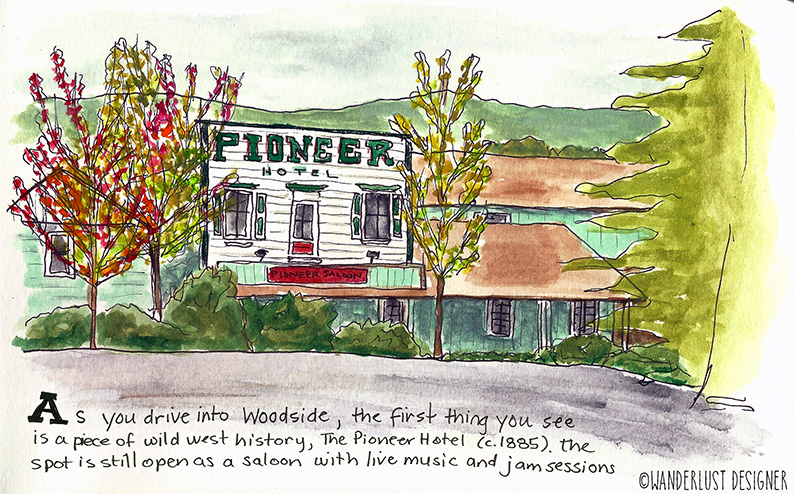 PIONEER
HOTEL
PIONEER SALOON
As you drive into Woodside, the first thing you see
is a piece of wild west history, The Pioneer Hotel (c.1885). the
spot is still open as a saloon with live music and jam sessions
©WANDERLUST DESIGNER